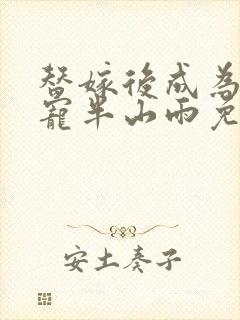 替嫁後成為
寵半山雨免
安土奏子